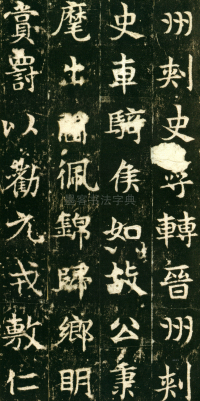 州刺史轉晉州刺
史車騎侯如故公秉
麾出佩錦歸鄉明
賞罰以勸元戎敷仁
书法字典